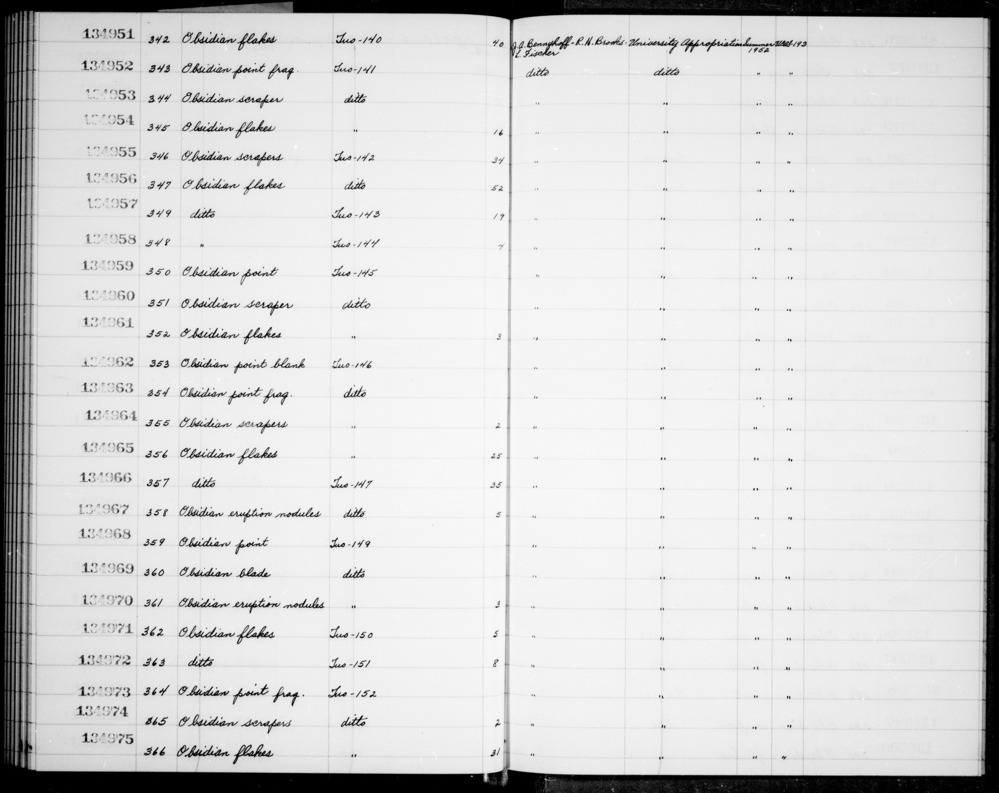 134951 342 Obsidian flakes Tuo-140 40 J.A. Bennyhoff - R.H. Brooks - University Appropriation Summer 1952 193
E. Fischer
134952 343 Obsidian point frag. Tuo-141 ditto ditto " "
134953 344 Obsidian scraper ditto " " " "
134954 345 Obsidian flakes " 16 " " " "
134955 346 Obsidian scrapers Tuo-142 34 " " " "
134956 347 Obsidian flakes ditto 52 " " " "
134957 349 ditto Tuo-143 19 " " " "
134958 348 " Tuo-144 4 " " " "
134959 350 Obsidian point Tuo-145 " " " "
134960 351 Obsidian scraper ditto " " " "
134961 352 Obsidian flakes " 3 " " " "
134962 353 Obsidian point blank Tuo-146 " " " "
134963 354 Obsidian point frag. ditto " " " "
134964 355 Obsidian scrapers " 2 " " " "
134965 356 Obsidian flakes " 25 " " " "
134966 357 ditto Tuo-147 35 " " " "
134967 358 Obsidian eruption nodules ditto 5 " " " "
134968 359 Obsidian point Tuo-149 " " " "
134969 360 Obsidian blade ditto " " " "
134970 361 Obsidian eruption nodules " 3 " " " "
134971 362 Obsidian flakes Tuo-150 5 " " " "
134972 363 ditto Tuo-151 8 " " " "
134973 364 Obsidian point frag. Tuo-152 " " " "
134974 365 Obsidian scrapers ditto 2 " " " "
134975 366 Obsidian flakes " 31 " " " "